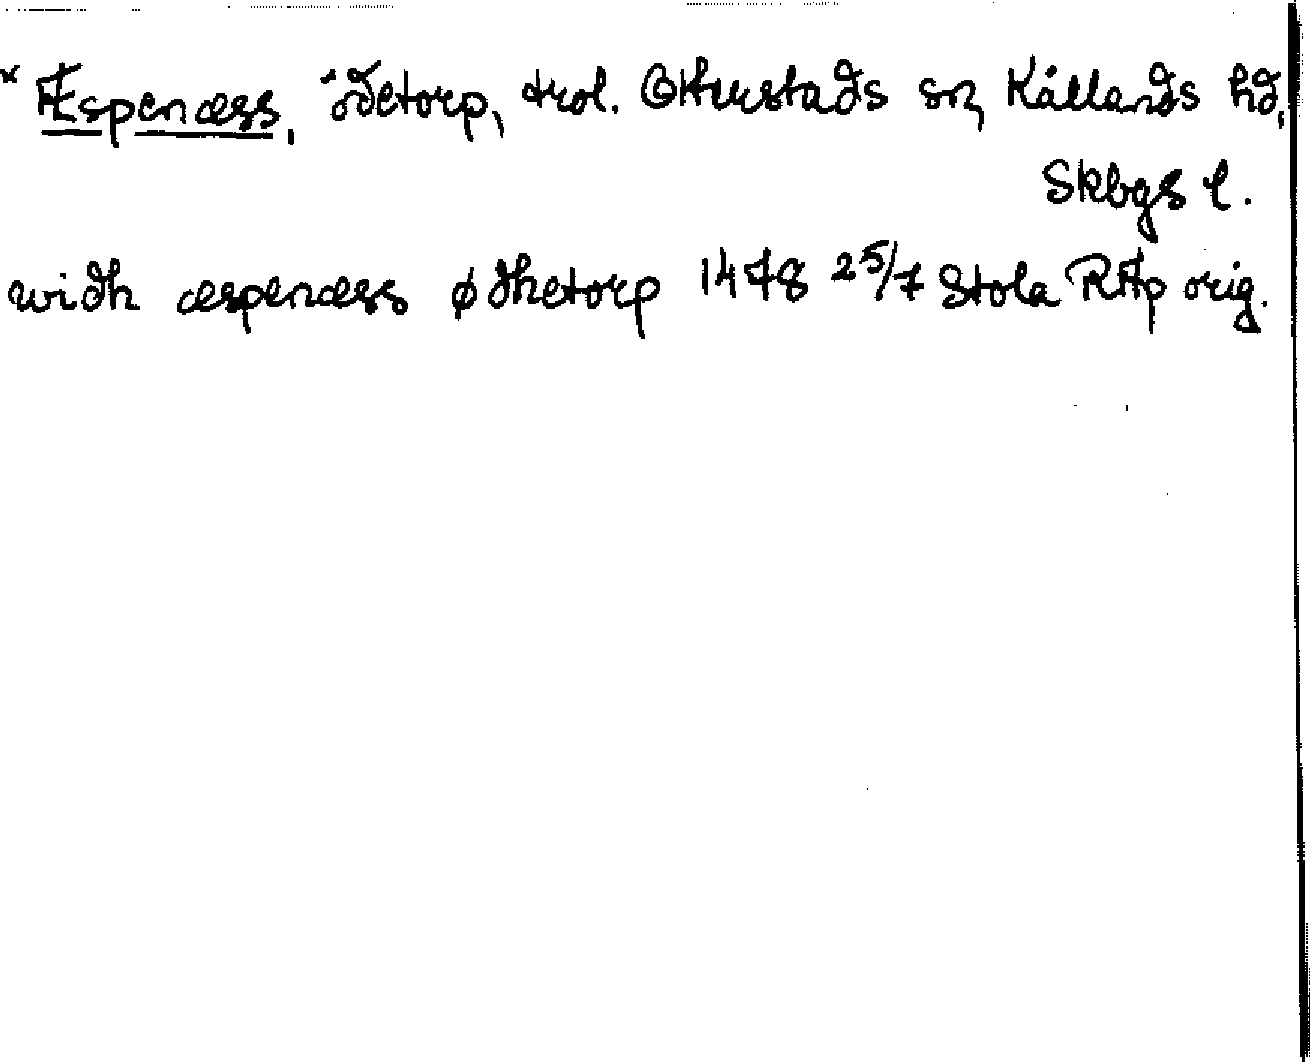 * Æspenæss, ödetorp, trol. Otterstads sn, Kållands hd,
Skbgs l.
widh æspenæss ødhetorp 1478 25/7 Stola RAp orig.